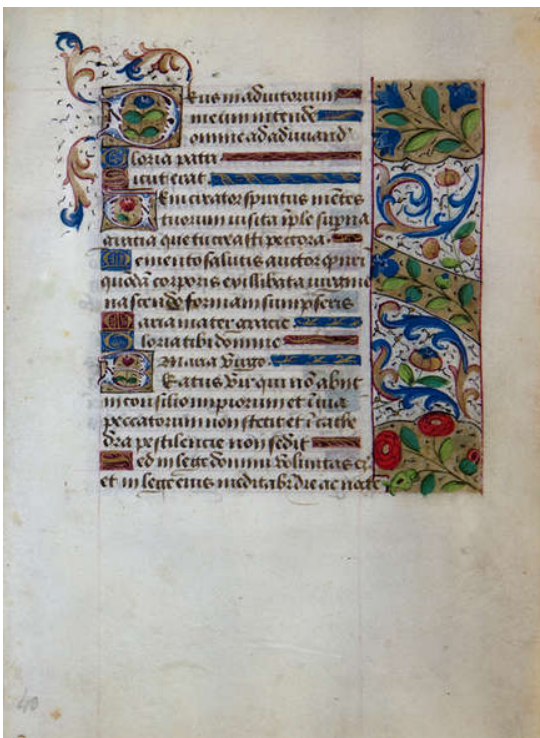 Deus in adiutorium
meum intende
Domine ad adiuvand
Gloria patri
Sicut erat
Veni creator spiritus mentes
tuorum visita iple superna
gratia que tu creasti pectora
Memento salutis auctor
quodā corporis ex illibata virgine
nascendo formam sumpseris
Maria mater gracie
Gloria tibi domine
Maria virgo
Beatus vir qui nō abiit
in consilio impiorum et ī via
peccatorum non stetit et ī cathe
dra pestilencie non sedit
Sed in lege domini voluntas ei
et in lege eius meditabr die ac nocte
40